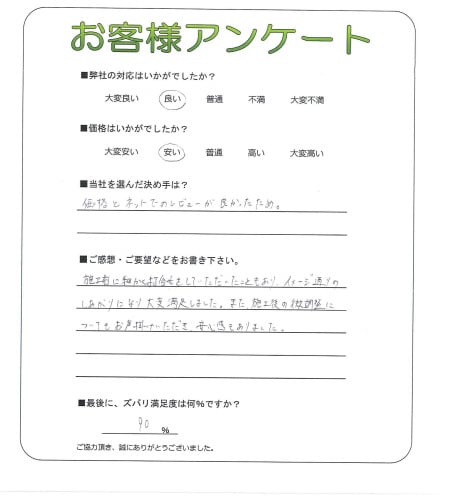 お客様アンケート
■弊社の対応はいかがでしたか？
大変良い 良い 普通 不満 大変不満
■価格はいかがでしたか？
大変安い 安い 普通 高い 大変高い
■当社を選んだ決め手は？
価格とネットでのレビューが良かったため。
■ご感想・ご要望などをお書き下さい。
施工前に細かく打合せをしていただいたこともあり、イメージ通りの
仕上がりになり大変満足しました。また、施工後の微調整に
ついてもお声掛けいただき、安心感もありました。
■最後に、ズバリ満足度は何％ですか？
90 ％
ご協力頂き、誠にありがとうございました。